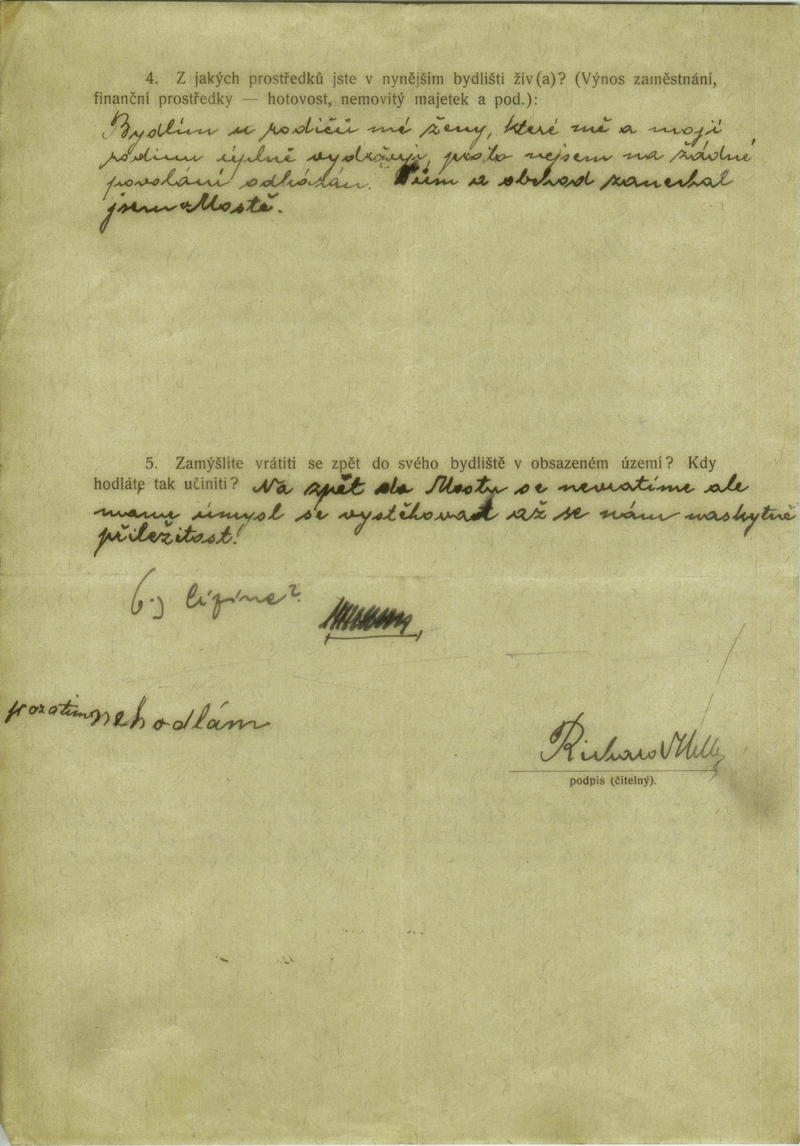 4. Z jakých prostředků jste v nynějším bydlišti živ(a)? (Výnos zaměstnání,
finanční prostředky — hotovost, nemovitý majetek a pod.):
Bydlím u rodičů mé ženy, které mě a moji
rodinu úplně vydržují, proto nejsem na žádné
povolání odkázán. Dům a obchod zanechal
jsem v Mostě.
5. Zamýšlíte vrátiti se zpět do svého bydliště v obsazeném území? Kdy
hodláte tak učiniti? Na zpět do Mostu se nevratíme ale
mame úmysl se vystěhovat až se nám naskytně
přiležitost.
6.)
pozatim nehodlám
Richard
podpis (čitelný).